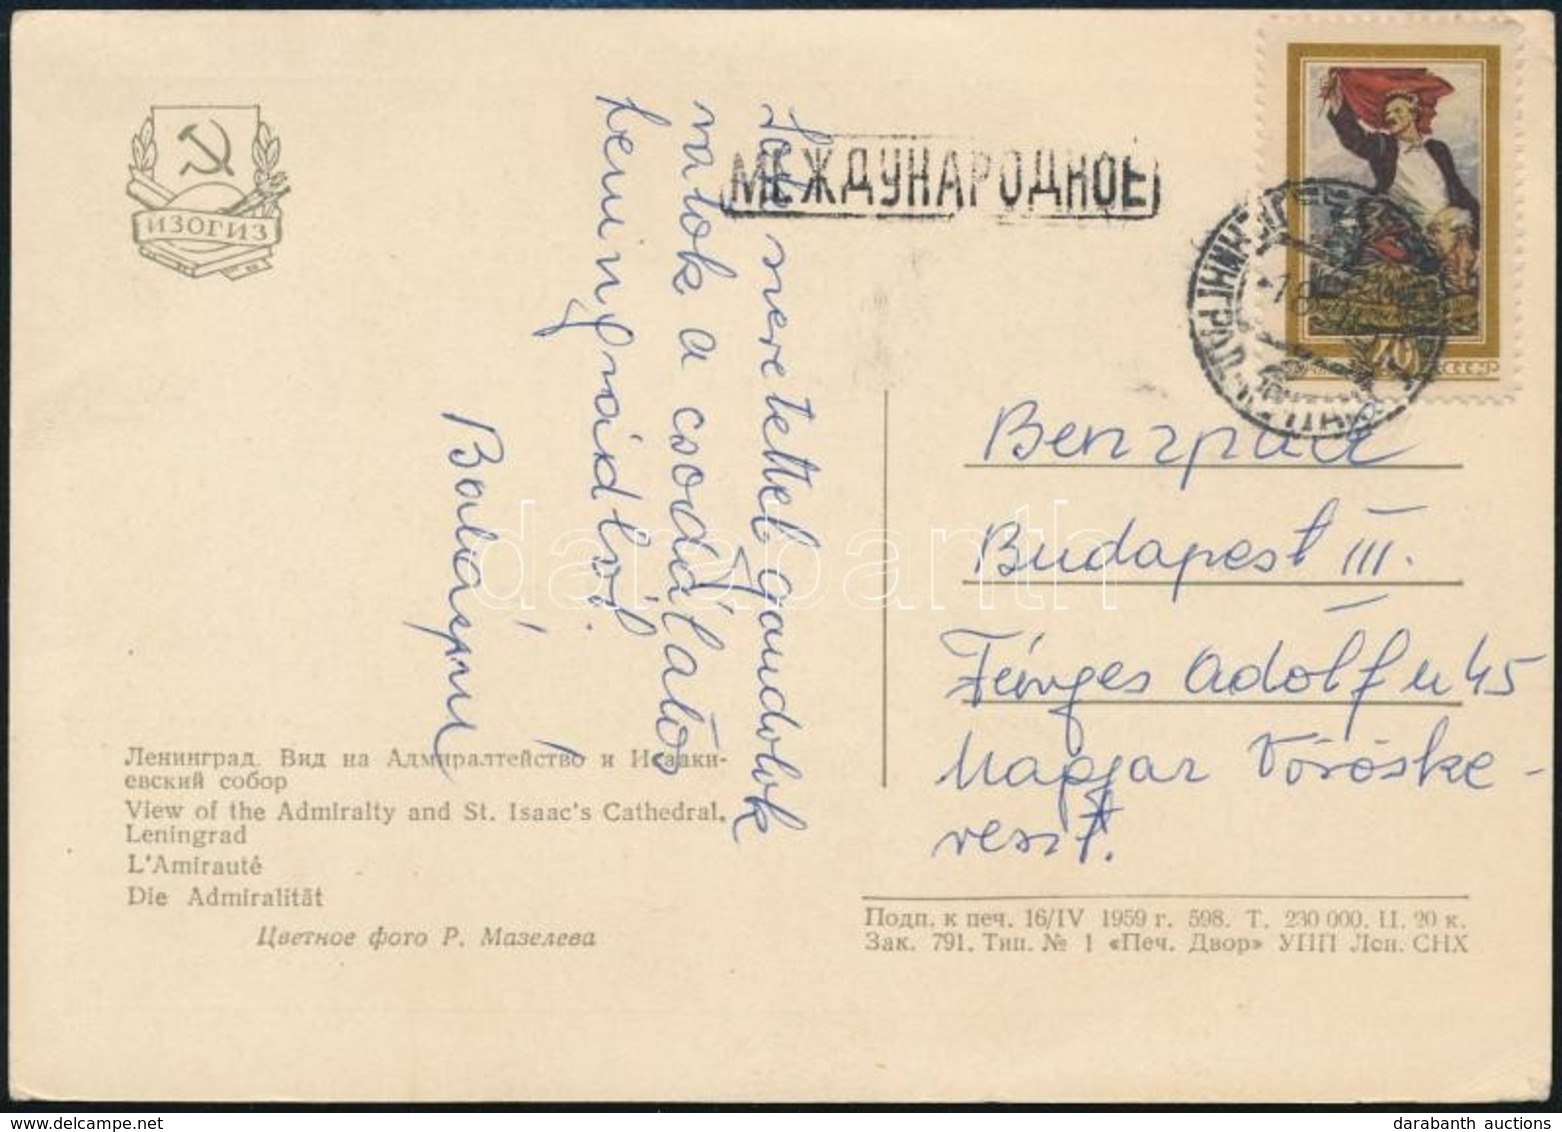 ИЗОГИЗ
МЕЖДУНАРОДНОЕ
ЛЕНИНГРАД
40
СССР
szeretettel gondolok
rátok a csodálatos
Leningrádból.
Budapest III.
Fényes Adolf u 45
Magyar Vöröske-
reszt.
darabanth
Ленинград. Вид на Адмиралтейство и Исааки-
евский собор
View of the Admiralty and St. Isaac's Cathedral,
Leningrad
L'Amirauté
Die Admiralität
Цветное фото Р. Мазелева
Подп. к печ. 16/IV 1959 г. 598. Т. 230 000. Ц. 20 к.
Зак. 791. Тип. № 1 «Печ. Двор» УПП Лен. СНХ
darabanth auctions